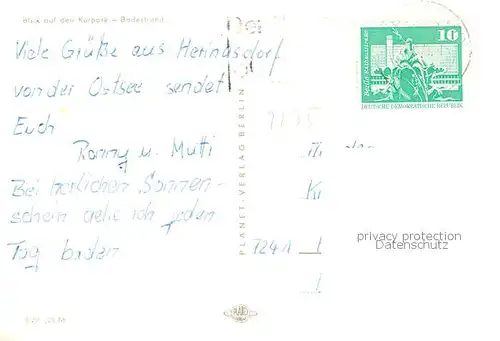 Blick auf den Kurpark – Badestrand
Viele Grüße aus
von der Ostsee sendet
Euch
Ronny u. Mutti
Bei herlichen Sonnen-
schein gehe ich jeden
Tag baden
PLANET-VERLAG BERLIN
10
DEUTSCHE DEMOKRATISCHE REPUBLIK
7241
privacy protection
Datenschutz